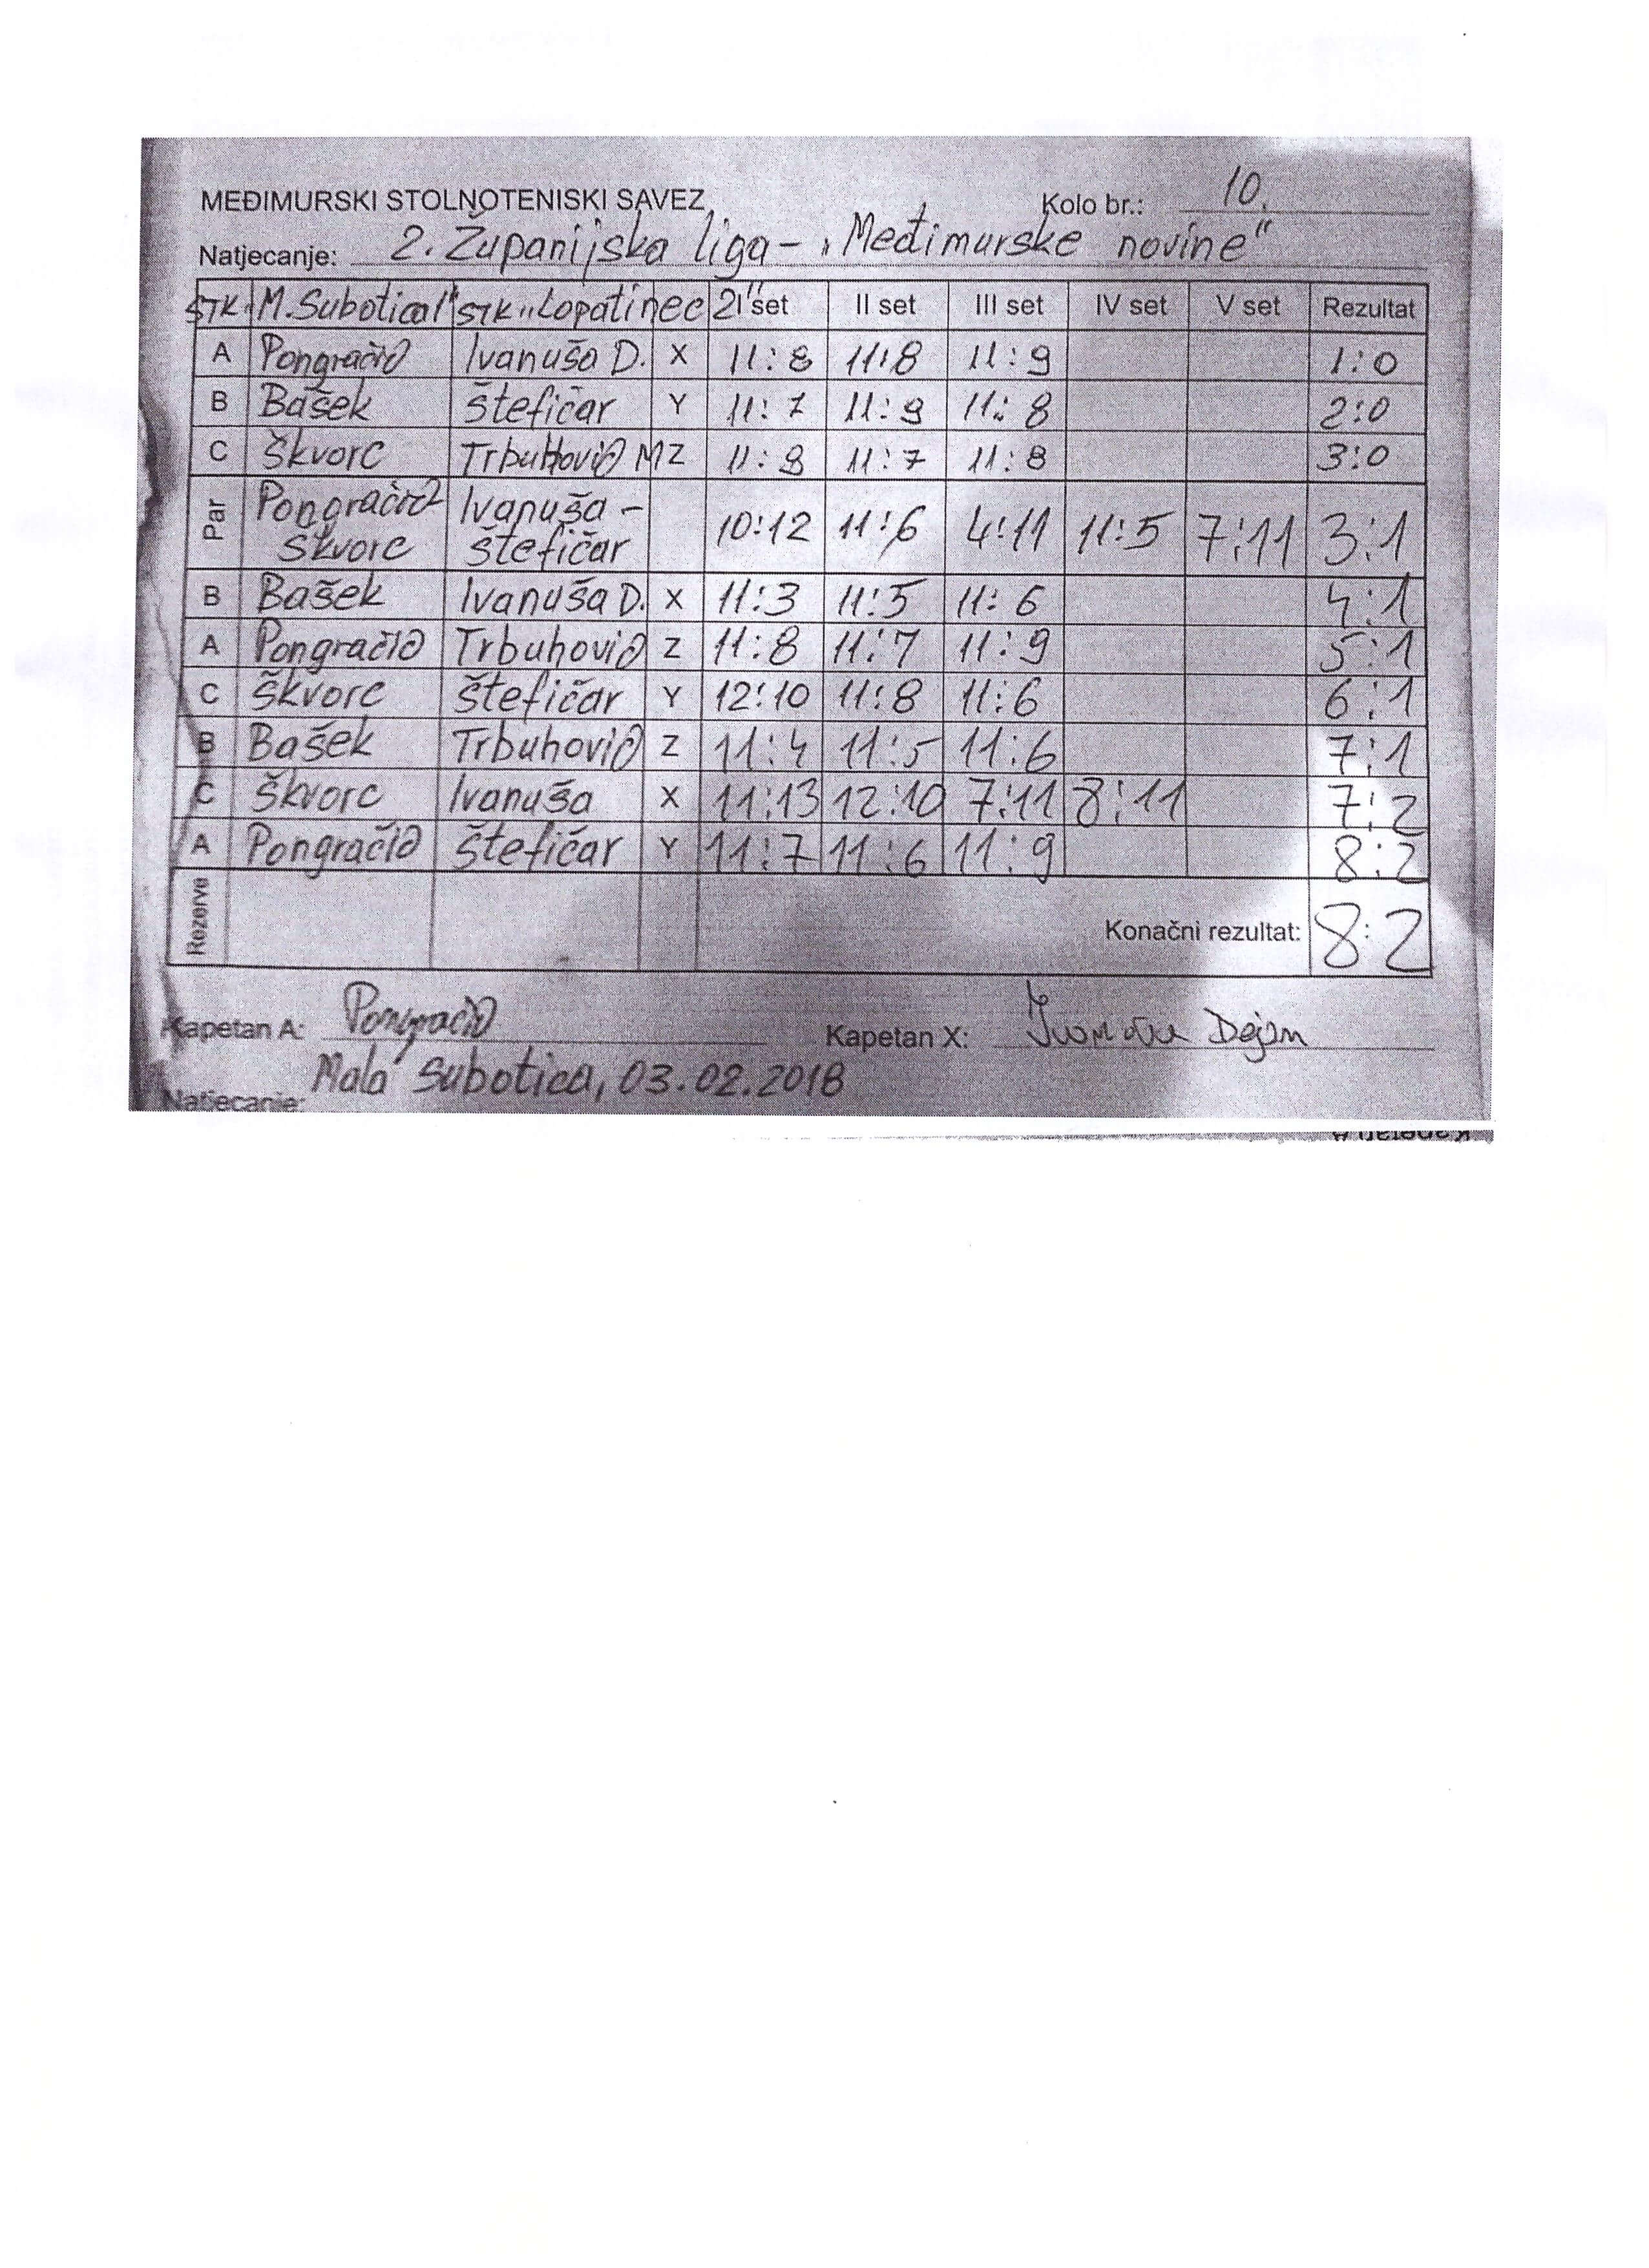 MEĐIMURSKI STOLNOTENISKI SAVEZ Kolo br.: 10.
Natjecanje: 2. Županijska liga - "Međimurske novine"
STK "M. Subotica 1" STK "Lopatinec 2" I set II set III set IV set V set Rezultat
A Pongračić Ivanuša D. X 11:8 11:8 11:9 1:0
B Bašek Štefičar Y 11:7 11:9 11:8 2:0
C Škvorc Trbuhović M Z 11:8 11:7 11:8 3:0
Par Pongračić Ivanuša - 10:12 11:6 4:11 11:5 7:11 3:1
Škvorc Štefičar
B Bašek Ivanuša D. X 11:3 11:5 11:6 4:1
A Pongračić Trbuhović Z 11:8 11:7 11:9 5:1
C Škvorc Štefičar Y 12:10 11:8 11:6 6:1
B Bašek Trbuhović Z 11:4 11:5 11:6 7:1
C Škvorc Ivanuša X 11:13 12:10 7:11 8:11 7:2
A Pongračić Štefičar Y 11:7 11:6 11:9 8:2
Rezerve Konačni rezultat: 8:2
Kapetan A: Pongračić Kapetan X: Dejan
Mala Subotica, 03.02.2018
Natjecanje: